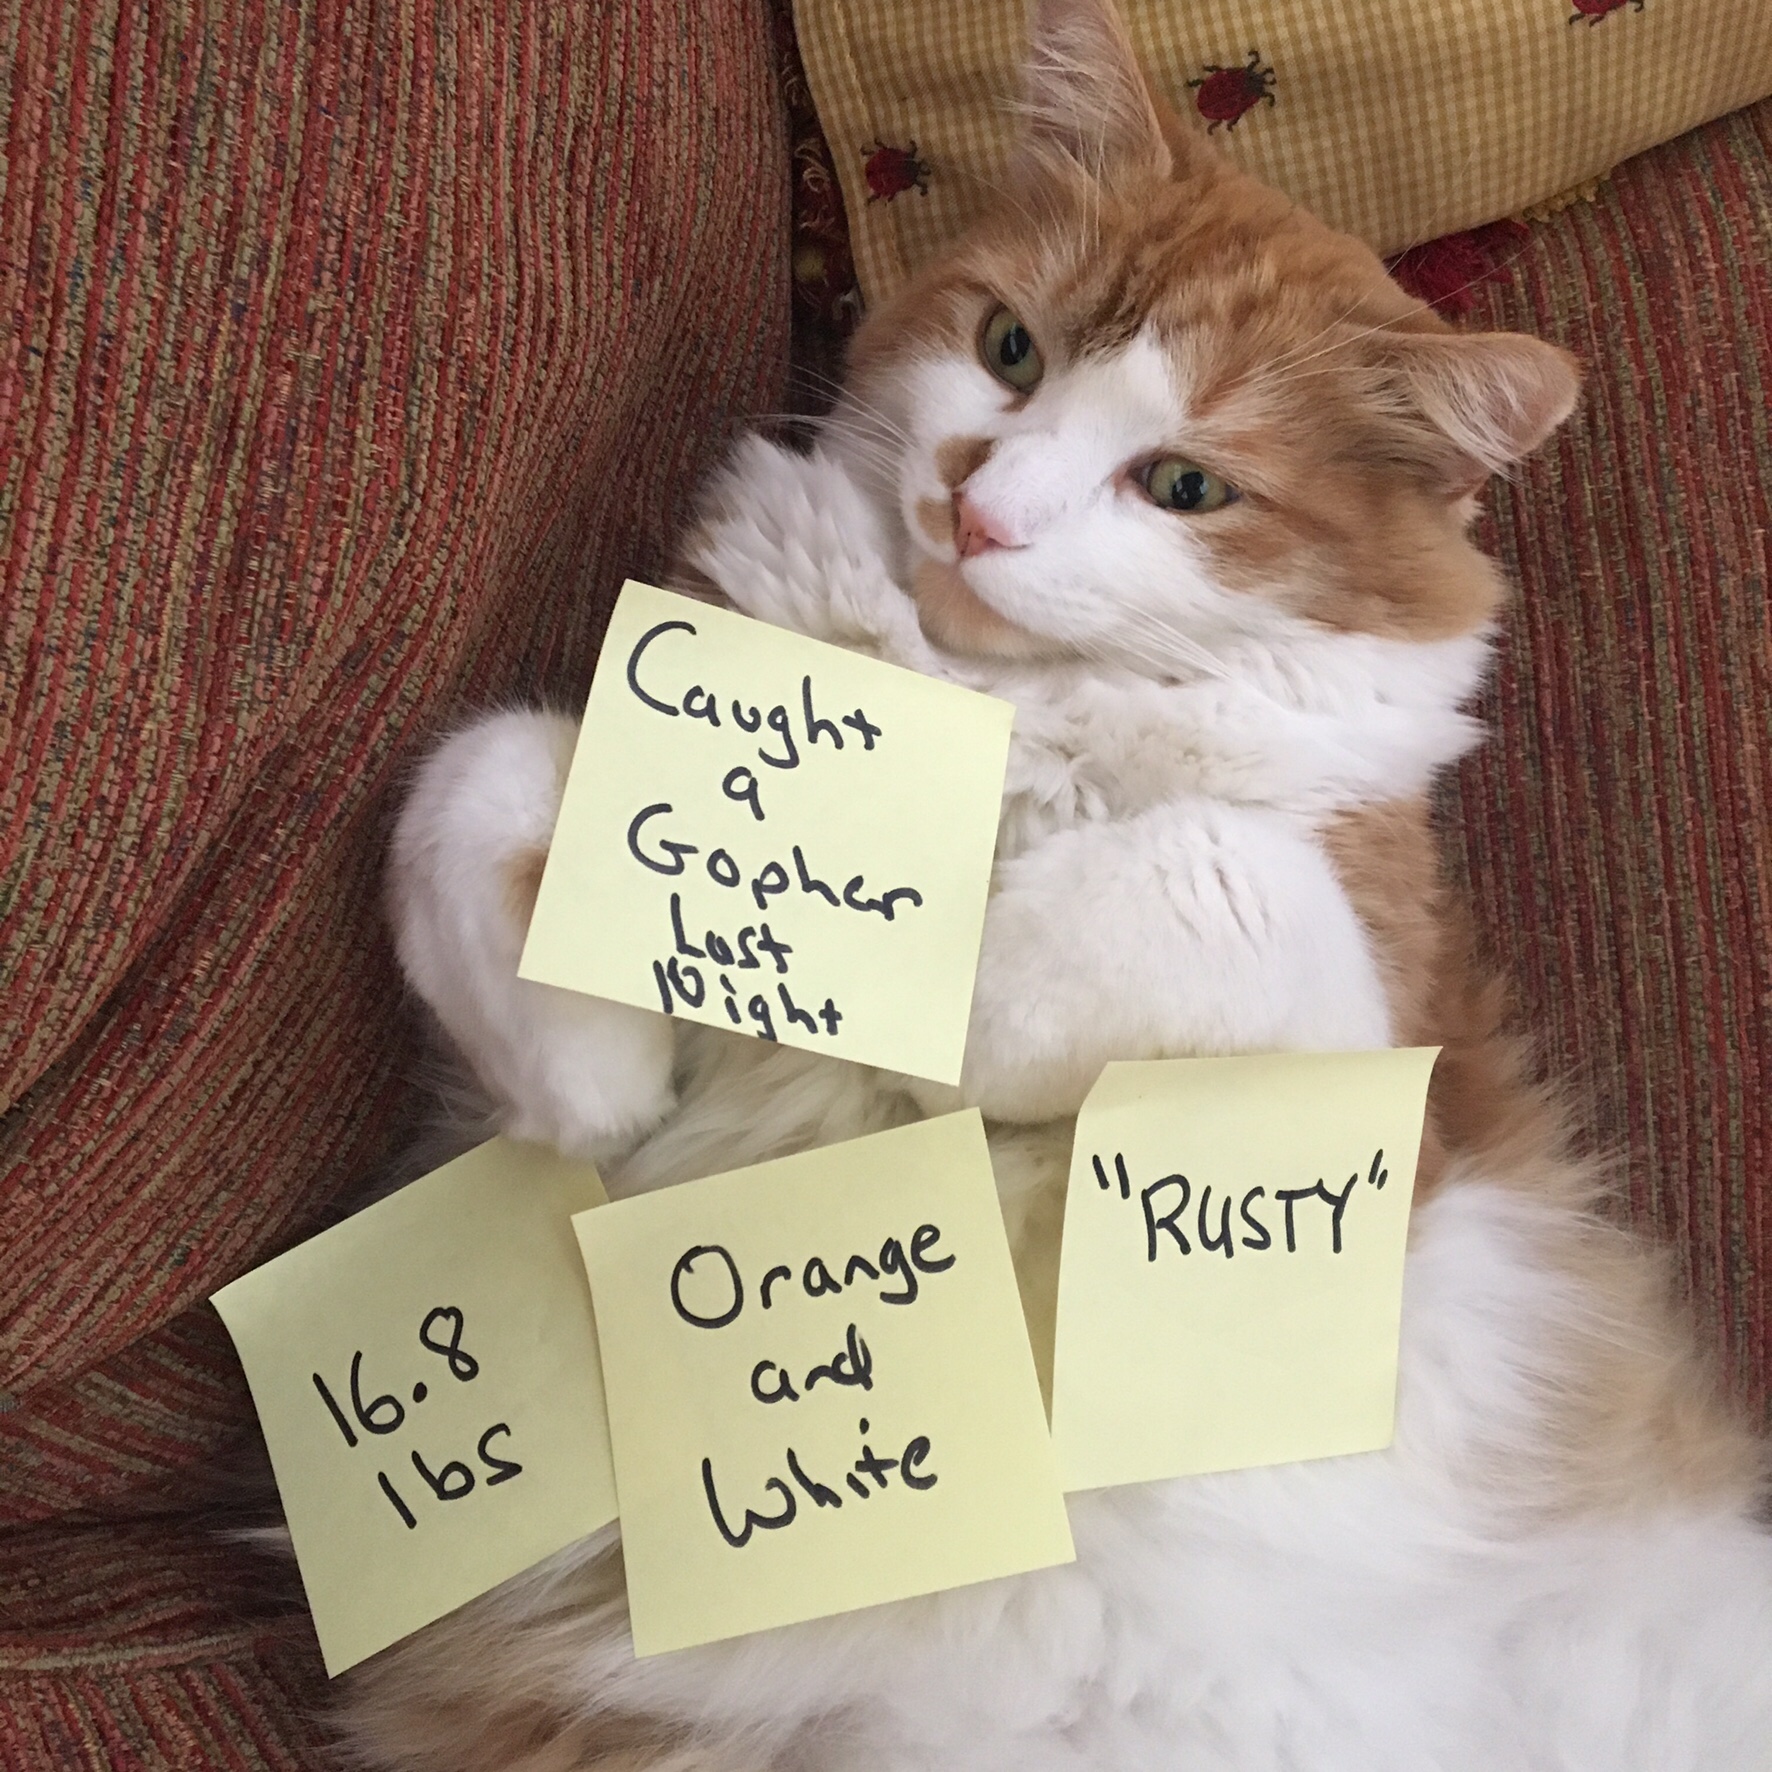 Caught
a
Gopher
Last
Night
16.8
lbs
Orange
and
White
"RUSTY"